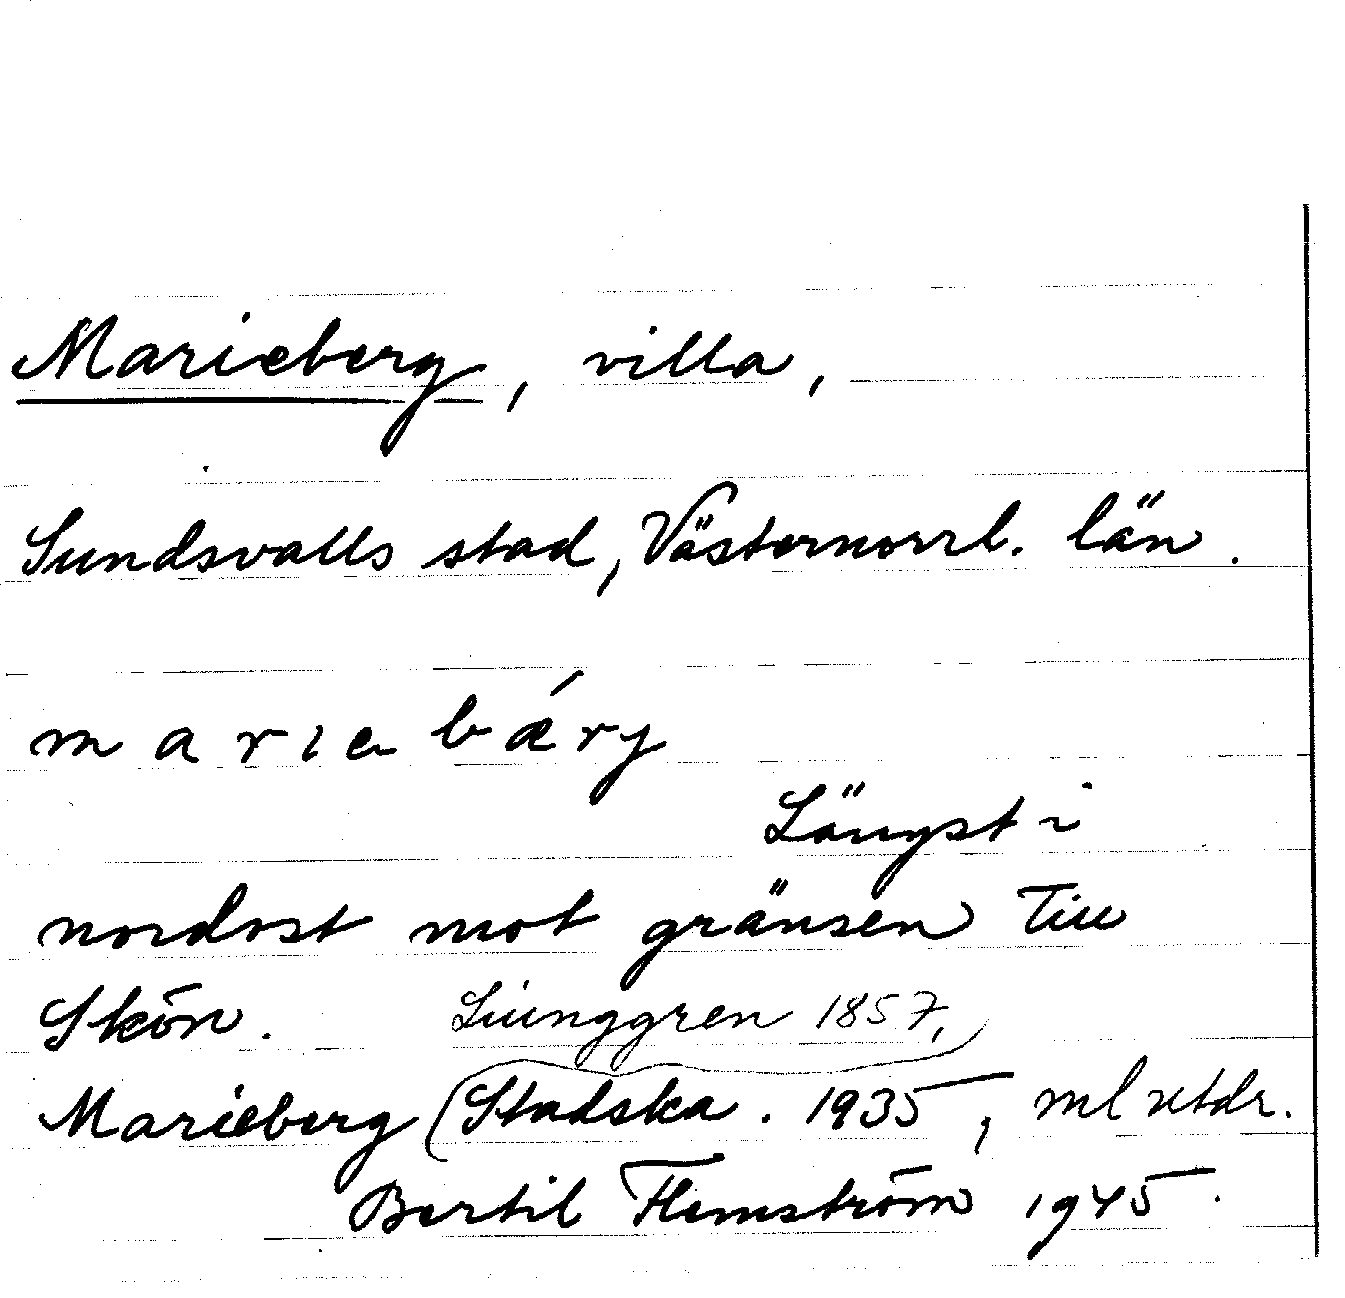 Marieberg, villa,
Sundsvalls stad, Västernorrl. län.
marie bǽrj
Längst i
nordost mot gränsen till
Skön. Liunggren 1857,
Marieberg (Stadska. 1935, ml utdr.
Bertil Flemström 1945.